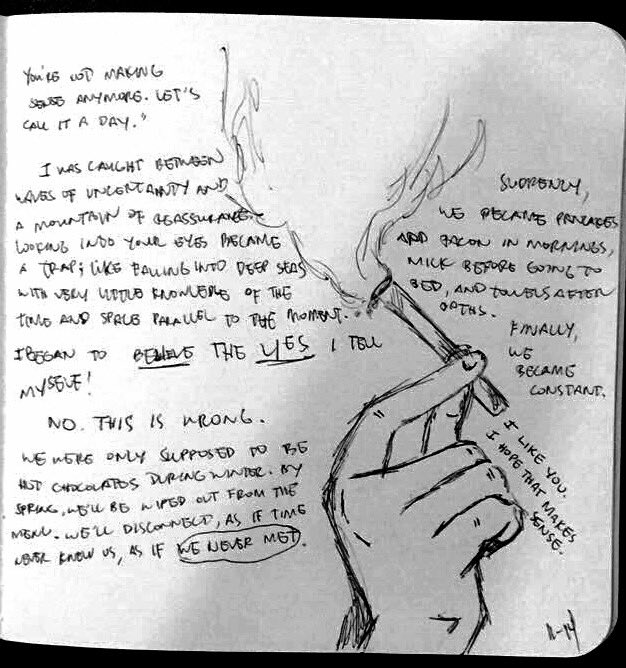 YOU'RE NOT MAKING
SENSE ANYMORE. LET'S
CALL IT A DAY."
I WAS CAUGHT BETWEEN
WAVES OF UNCERTAINTY AND
A MOUNTAIN OF REASSURANCE.
LOOKING INTO YOUR EYES BECAME
A TRAP; LIKE FALLING INTO DEEP SEAS
WITH VERY LITTLE KNOWLEDGE OF THE
TIME AND SPACE PARALLEL TO THE MOMENT.
I BEGAN TO BELIEVE THE LIES I TELL
MYSELF!
NO. THIS IS WRONG.
WE WERE ONLY SUPPOSED TO BE
HOT CHOCOLATES DURING WINTER. BY
SPRING, WE'LL BE WIPED OUT FROM THE
MENU. WE'LL DISCONNECT, AS IF TIME
NEVER KNEW US, AS IF WE NEVER MET.
SUDDENLY,
WE BECAME PANCAKES
AND BACON IN MORNINGS,
MILK BEFORE GOING TO
BED, AND TOWELS AFTER
BATHS.
FINALLY,
WE
BECAME
CONSTANT.
I LIKE YOU.
I HOPE THAT MAKES
SENSE.